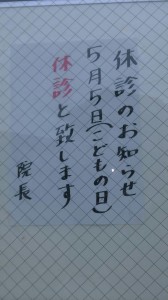 休診のお知らせ
5月5日(こどもの日)
休診と致します
院長